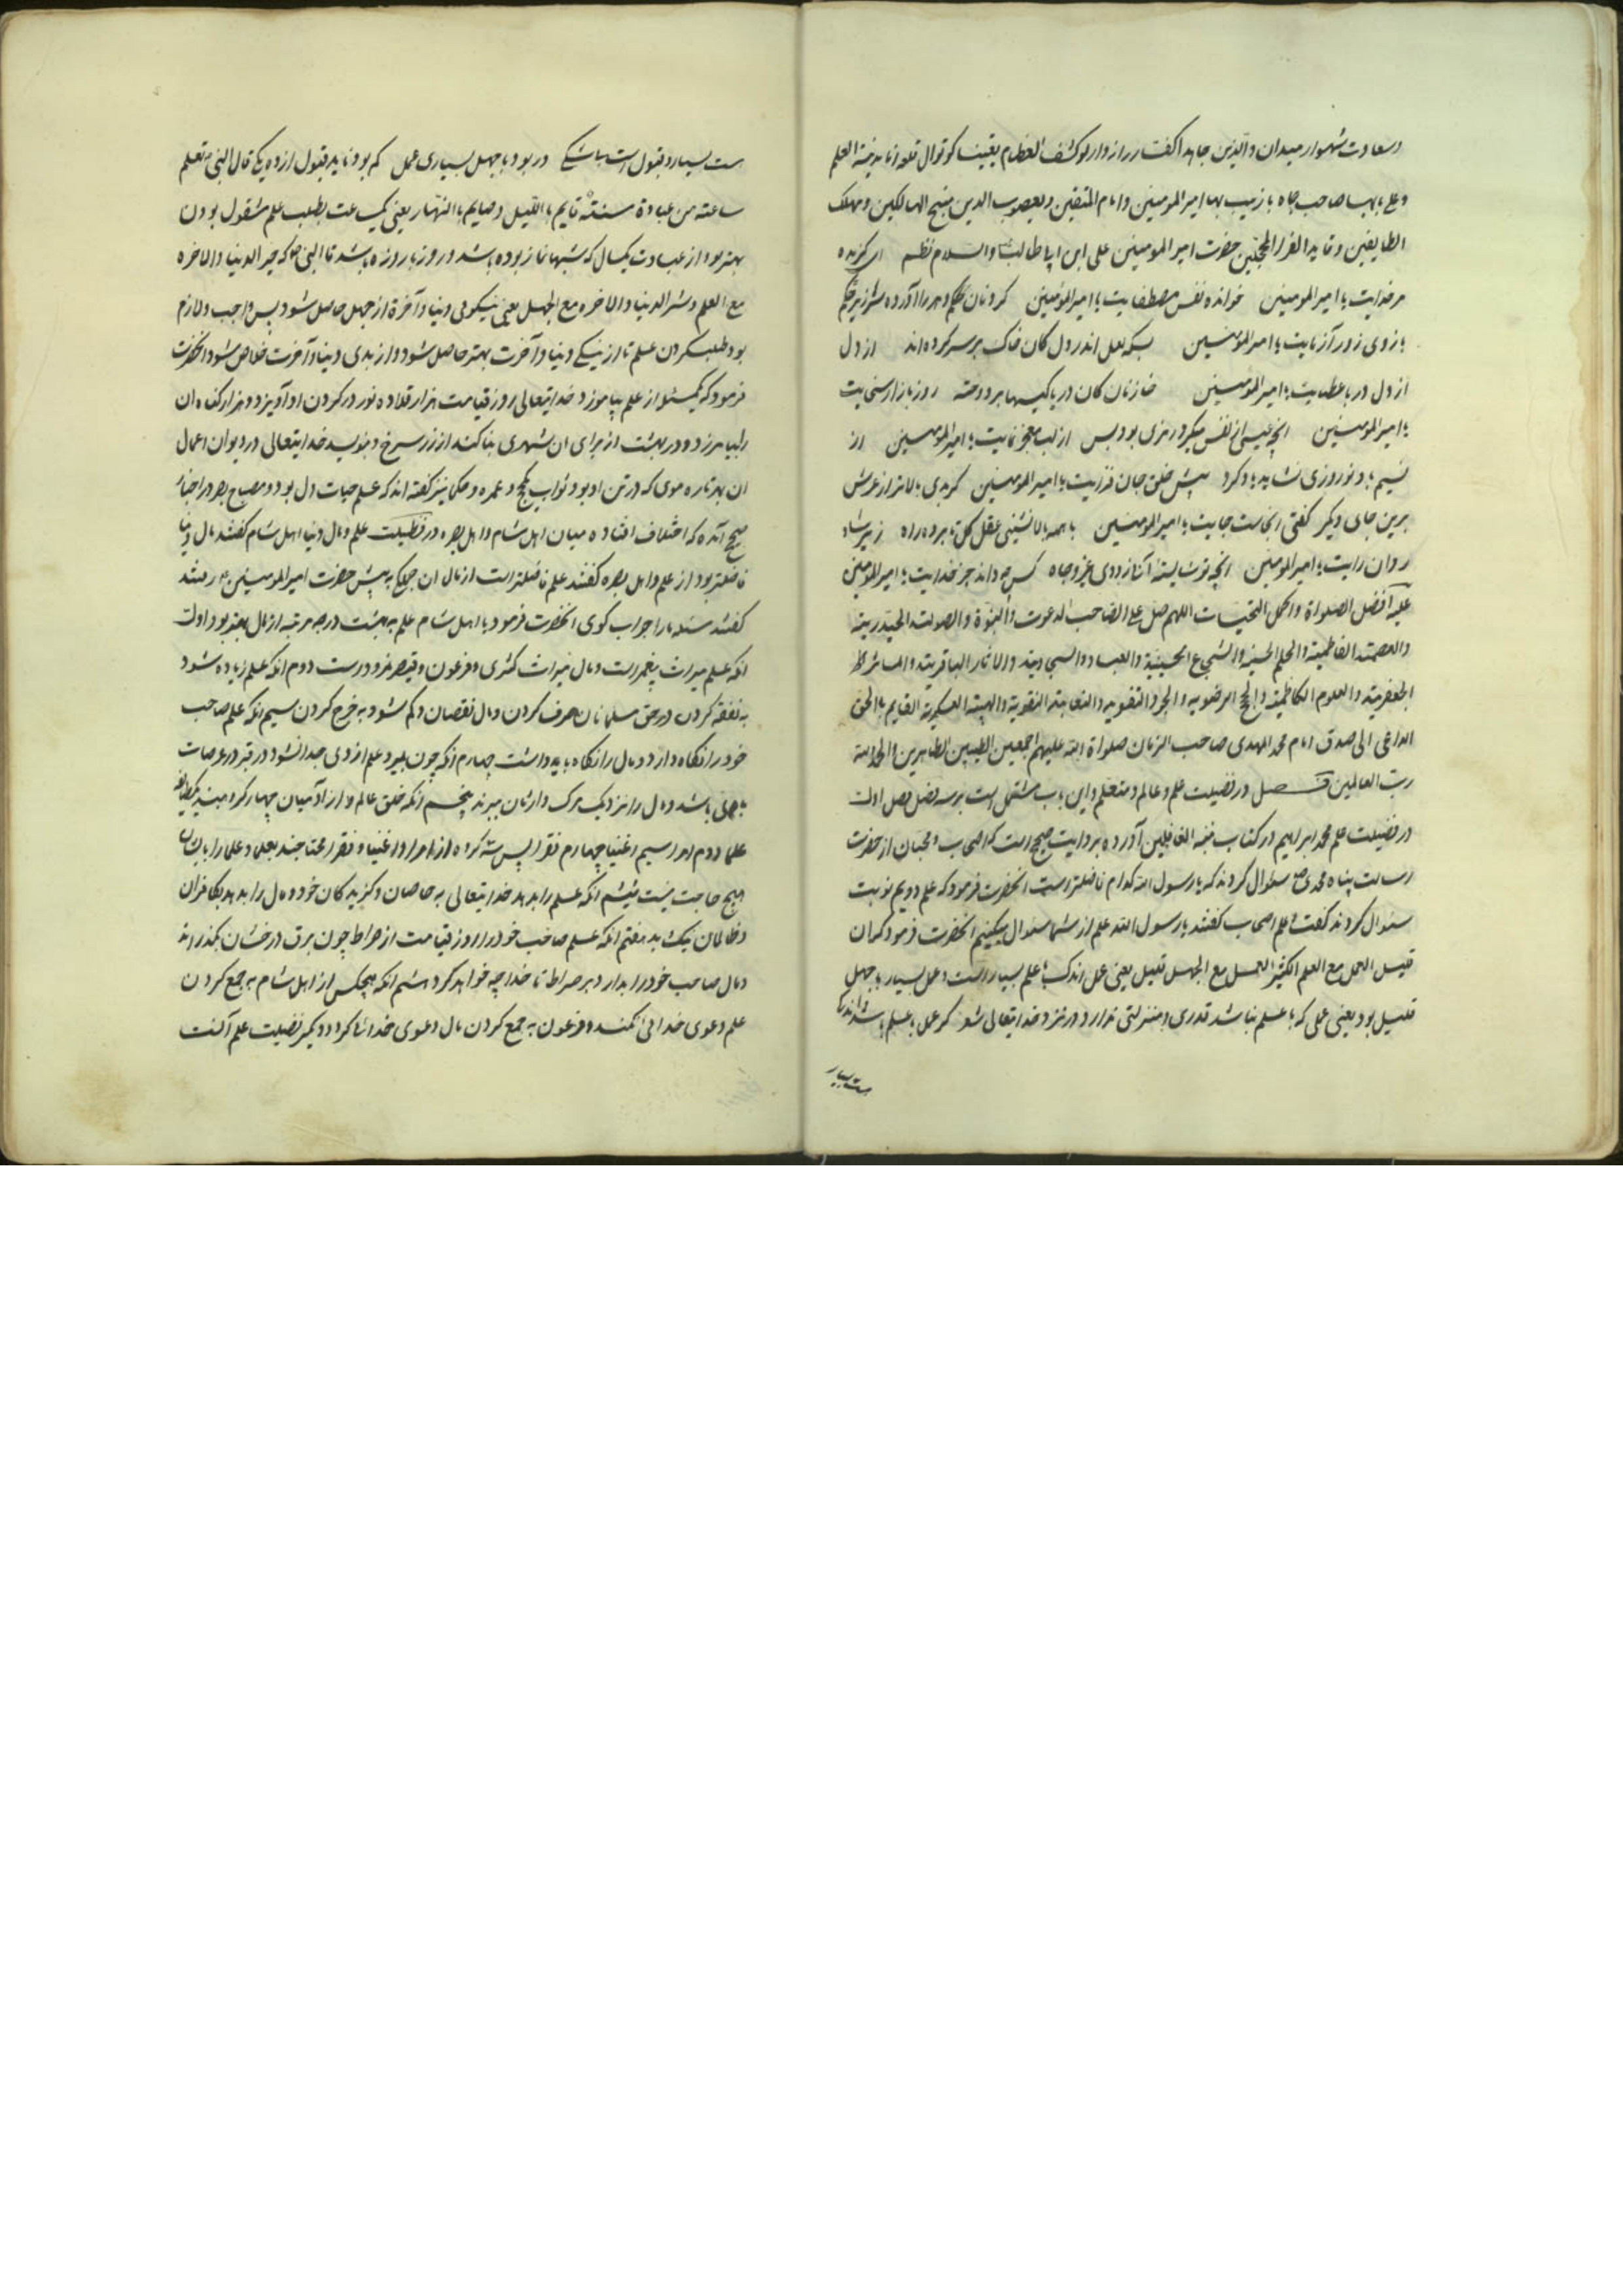 وسعادت شهسوار میدان والذین جاهدا گفتار رازدار لوکشف الغطاء یقینا کوتوال قلعه انا مدینة العلم
وعلی بابها صاحب جاه با زیب بها امیرالمومنین وامام المتقین ویعصوب الدین منبع السالکین ومهلک
الطایفین وقاید الغرالمحجلین حضرت امیرالمومنین علی ابن ابی طالب والسلام نظم ای گزیده
مر خدایت یا امیرالمومنین خوانده نفس مصطفایت یا امیرالمومنین گردنان را آورده سر زیر حکم
بازوی زورآزمایت یا امیرالمومنین بسکه لعل اندر دل کان خاک بر سر کرده اند از دل
از دل دریا عطایت یا امیرالمومنین خازنان کان دریا کیسها بردوخته روز بازار سخایت
یا امیرالمومنین انچه عیسی از نفس میکرد رمزی بود وبس از لب معجز نمایت یا امیرالمومنین از
نسیم باد نوروزی نشاید یاد کرد پیش خلق جان فزایت یا امیرالمومنین گر بدی بالاتر از عرش
برین جای دیگر گفتی انجاست جایت یا امیرالمومنین با همه بالانشینی عقل کل نابرده راه زیر شاد
روان رایت یا امیرالمومنین انچه تو شایسته آنی از روی عز وجاه کس چه داند جز خدایت یا امیرالمومنین
علیه افضل الصلواة واکمل التحیات اللهم صل علی الصاحب الدعوت النبوة والصولت الحیدریته
والعصمته الفاطمیته والحلم الحسنیه والشجاع الحسینیة والعباد والسجادیته والاثار الباقریته والماثر
الجعفریته والعلوم الکاظمیته والحج الرضویه والجود التقویه والنقابته النقویته والهیبته العسکریته القایم باالحق
الداعی الی صدق امام محمد المهدی صاحب الزمان صلواة الله علیهم اجمعین الطیبین الطاهرین والحمد لله
رب العالمین فصل در فضیلت علم وعالم ومتعلم واین باب مشتمل است بر سه فصل فصل اول
در فضیلت علم محمد ابراهیم در کتاب تنبه الغافلین آورده بروایت صحیح است که اصحاب ومحبان از حضرت
رسالت پناه محمد سئوال کردند که یا رسول الله کدام فاضلتر است انحضرت فرمود که علم دویم نوبت
سئوال کردند گفت علم اصحاب گفتند یا رسول الله علم از شما سئوال میکنیم انحضرت فرمود که ان
قلیل العمل مع العلم الکثیر العمل مع الجهل قلیل یعنی عمل اندک با علم بسیار است وعمل بسیار با جهل
قلیل بود یعنی عملی که با علم نباشد قدری ومنزلتی ندارد در نزد خدایتعالی شعر گر عمل با علم باشد اندک
ست بسیار
ست بسیار وقبول است باشکی در بود با جهل بسیاری عمل کم بود ناید قبول از ده یکی قال النبی تعلم
ساعته من عبادة سنتة قایم باالیل وصایم باالنهار یعنی یکساعت بطلب علم مشغول بودن
بهتر بود از عبادت یکسال که شبها نماز بوده باشد وروز با روزه باشد قال النبی که خیر الدنیا والاخره
مع العلم وشر الدنیا والاخره مع الجهل یعنی نیکوئی دنیا وآخرة از جهل حاصل شود پس واجب ولازم
بود طلب کردن علم تا از نیکی دنیا وآخرت بهتر حاصل شود واز بدی دنیا وآخرت خلاص شود وانحضرت
فرمود که یکمسئله از علم بیاموزد خدایتعالی روز قیامت هزار قلاده نور در گردن او آویزد وهزار گناه ان
را بیامرزد ودر بهشت از برای ان شهری بنا کند از زر سرخ وبنویسد خدایتعالی در دیوان اعمال
ان بهر تاره موی که در تن او بود ثواب حج وعمره وحکما نیز گفته اند که علم حیات دل بود ومصباح بصر در اخبار
صحیح آمده که اختلاف افتاده میان اهل شام واهل بصره در فضیلت علم ومال دنیا اهل شام گفتند مال دنیا
فاضلتر بود از علم واهل بصره گفتند علم فاضلتر است از مال ان جمله به پیش حضرت امیرالمومنین رفتند
گفتند مسئله ما را جواب گوی انحضرت فرمود با اهل شام علم به بهشت درجه مرتبه از مال بهتر بود اول
انکه علم میراث پیغمبر است ومال میراث کسری وفرعون وقیصر نمرود است دوم انکه علم زیاده شود
به نفقه کردن در حق مسلمانان صرف کردن ومال نقصان وکم شود به خرج کردن سیم انکه علم صاحب
خود را نگاه دارد ومال را نگاه باید داشت چهارم انکه چون بمیرد علم از وی جدا نشود در قبر در عرصات
با وی باشد ومال را نزدیک مرگ وارثان ببرند پنجم انکه خلق عالم از ادمیان چهار گروه میند یکطایفه
علما دوم امرا سیم اغنیا چهارم فقرا پس سه گروه از امرا واغنیا وفقرا محتاجند بعلما وعلما را باایشان
هیچ حاجت نیست ششم انکه علم را بدهد خدایتعالی به خاصان وگزیدگان خود ومال را بدهد بکافران
وظالمان هفتم انکه علم صاحب خود را روز قیامت از صراط چون برق درخشان بگذراند
ومال صاحب خود را بدارد بر صراط تا خدا چه خواهد کرد هشتم انکه هیچکس از اهل شام به جمع کردن
علم دعوی خدائی نکنند وفرعون به جمع کردن مال دعوی خدائی کرد ودیگر فضیلت علم آنست